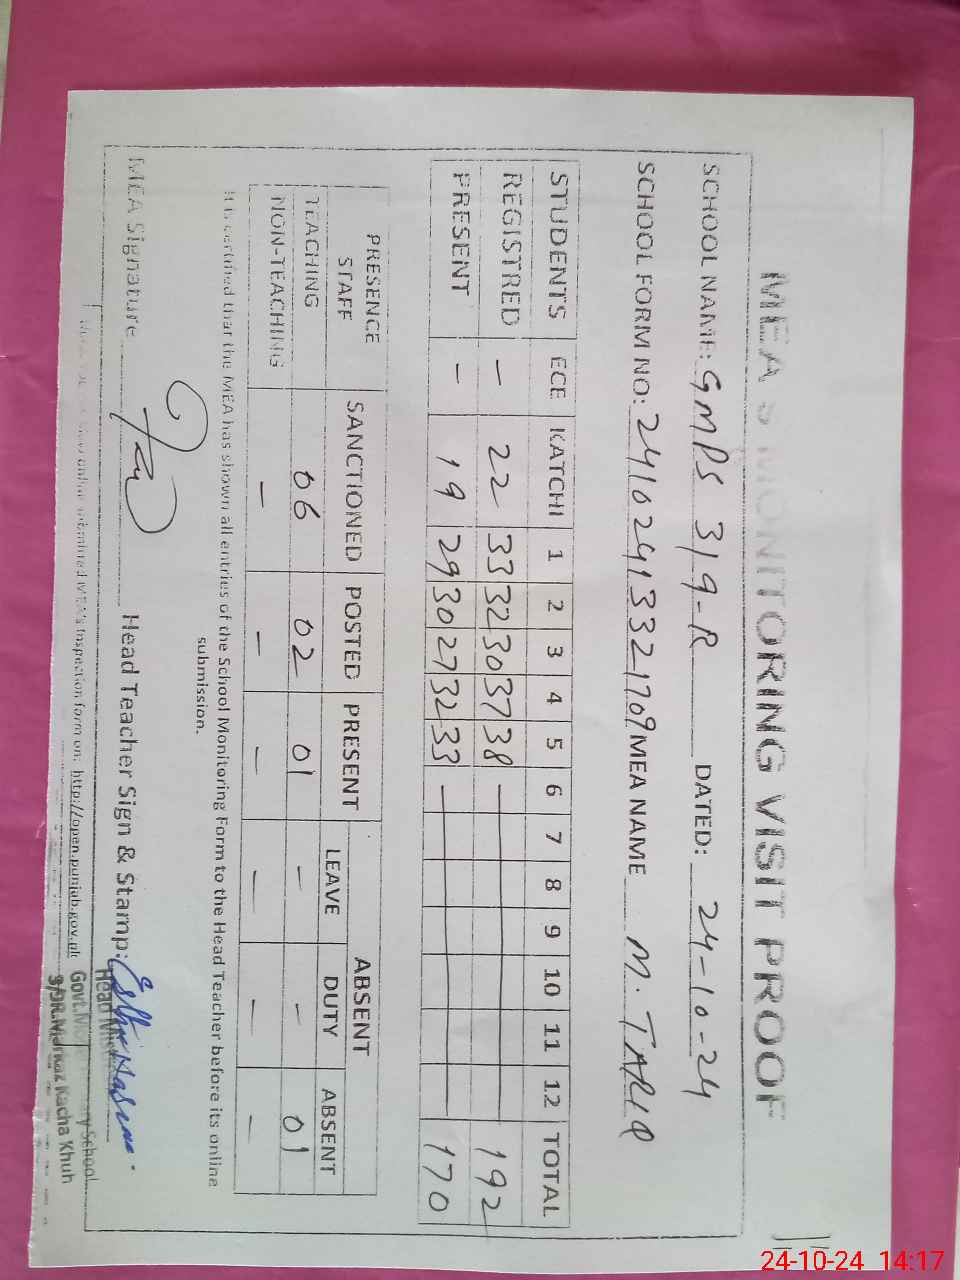 MEA'S MONITORING VISIT PROOF
SCHOOL NAME: GMPS 319-R DATED: 24-10-24
SCHOOL FORM NO: 24102413321709 MEA NAME M. TARIQ
STUDENTS ECE KATCHI 1 2 3 4 5 6 7 8 9 10 11 12 TOTAL
REGISTRED – 22 33 32 30 37 38 192
PRESENT – 19 29 30 27 32 33 170
PRESENCE STAFF SANCTIONED POSTED PRESENT ABSENT
LEAVE DUTY ABSENT
TEACHING 06 02 01 – – 01
NON-TEACHING – – – – – –
It is certified that the MEA has shown all entries of the School Monitoring Form to the Head Teacher before its online
submission.
MEA Signature Head Teacher Sign & Stamp:
online submitted MEA's Inspection form on: http://open.punjab.gov.pk
Head
Govt. School
Kacha Khuh
24-10-24 14:17